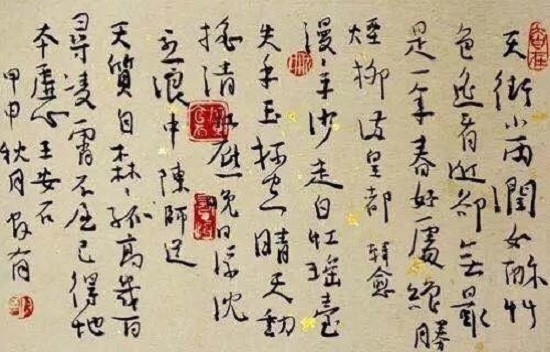 天街小雨潤如酥艸
色遙看近卻無最
是一年春好處絕勝
煙柳滿皇都 韓愈
漫〻平沙走白虹瑤臺
失手玉杯空晴天動
搖清江底晚日浮沈
急浪中 陳師道
天質自森〻孤高幾百
尋凌霄不屈己得地
本虛心 王安石
甲申秋月